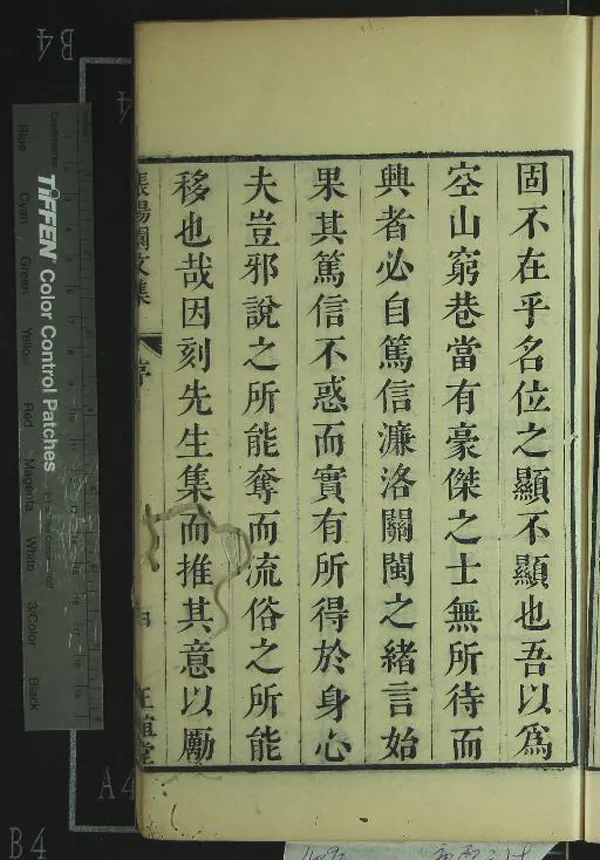 固不在乎名位之顯不顯也吾以為
空山窮巷當有豪傑之士無所待而
興者必自篤信濂洛關閩之緒言始
果其篤信不惑而實有所得於身心
夫豈邪說之所能奪而流俗之所能
移也哉因刻先生集而推其意以勵
張楊園文集
序
正誼堂
B4
A4
B4
TIFFEN Color Control Patches
Centimetres
Blue
Cyan
Green
Yellow
Red
Magenta
White
3/Color
Black